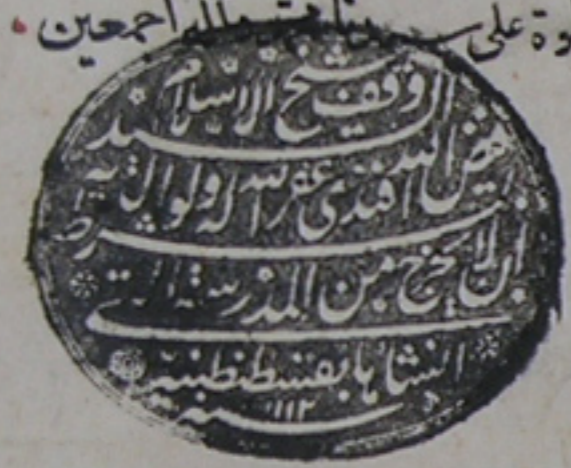 وة على سيدنا محمد وآله اجمعين
وقف شيخ الاسلام
السيد فيض الله افندى غفر الله له ولوالديه
بشرط ان لا يخرج من المدرسة التى
انشاها بقسطنطنية
سنة ١١١٢